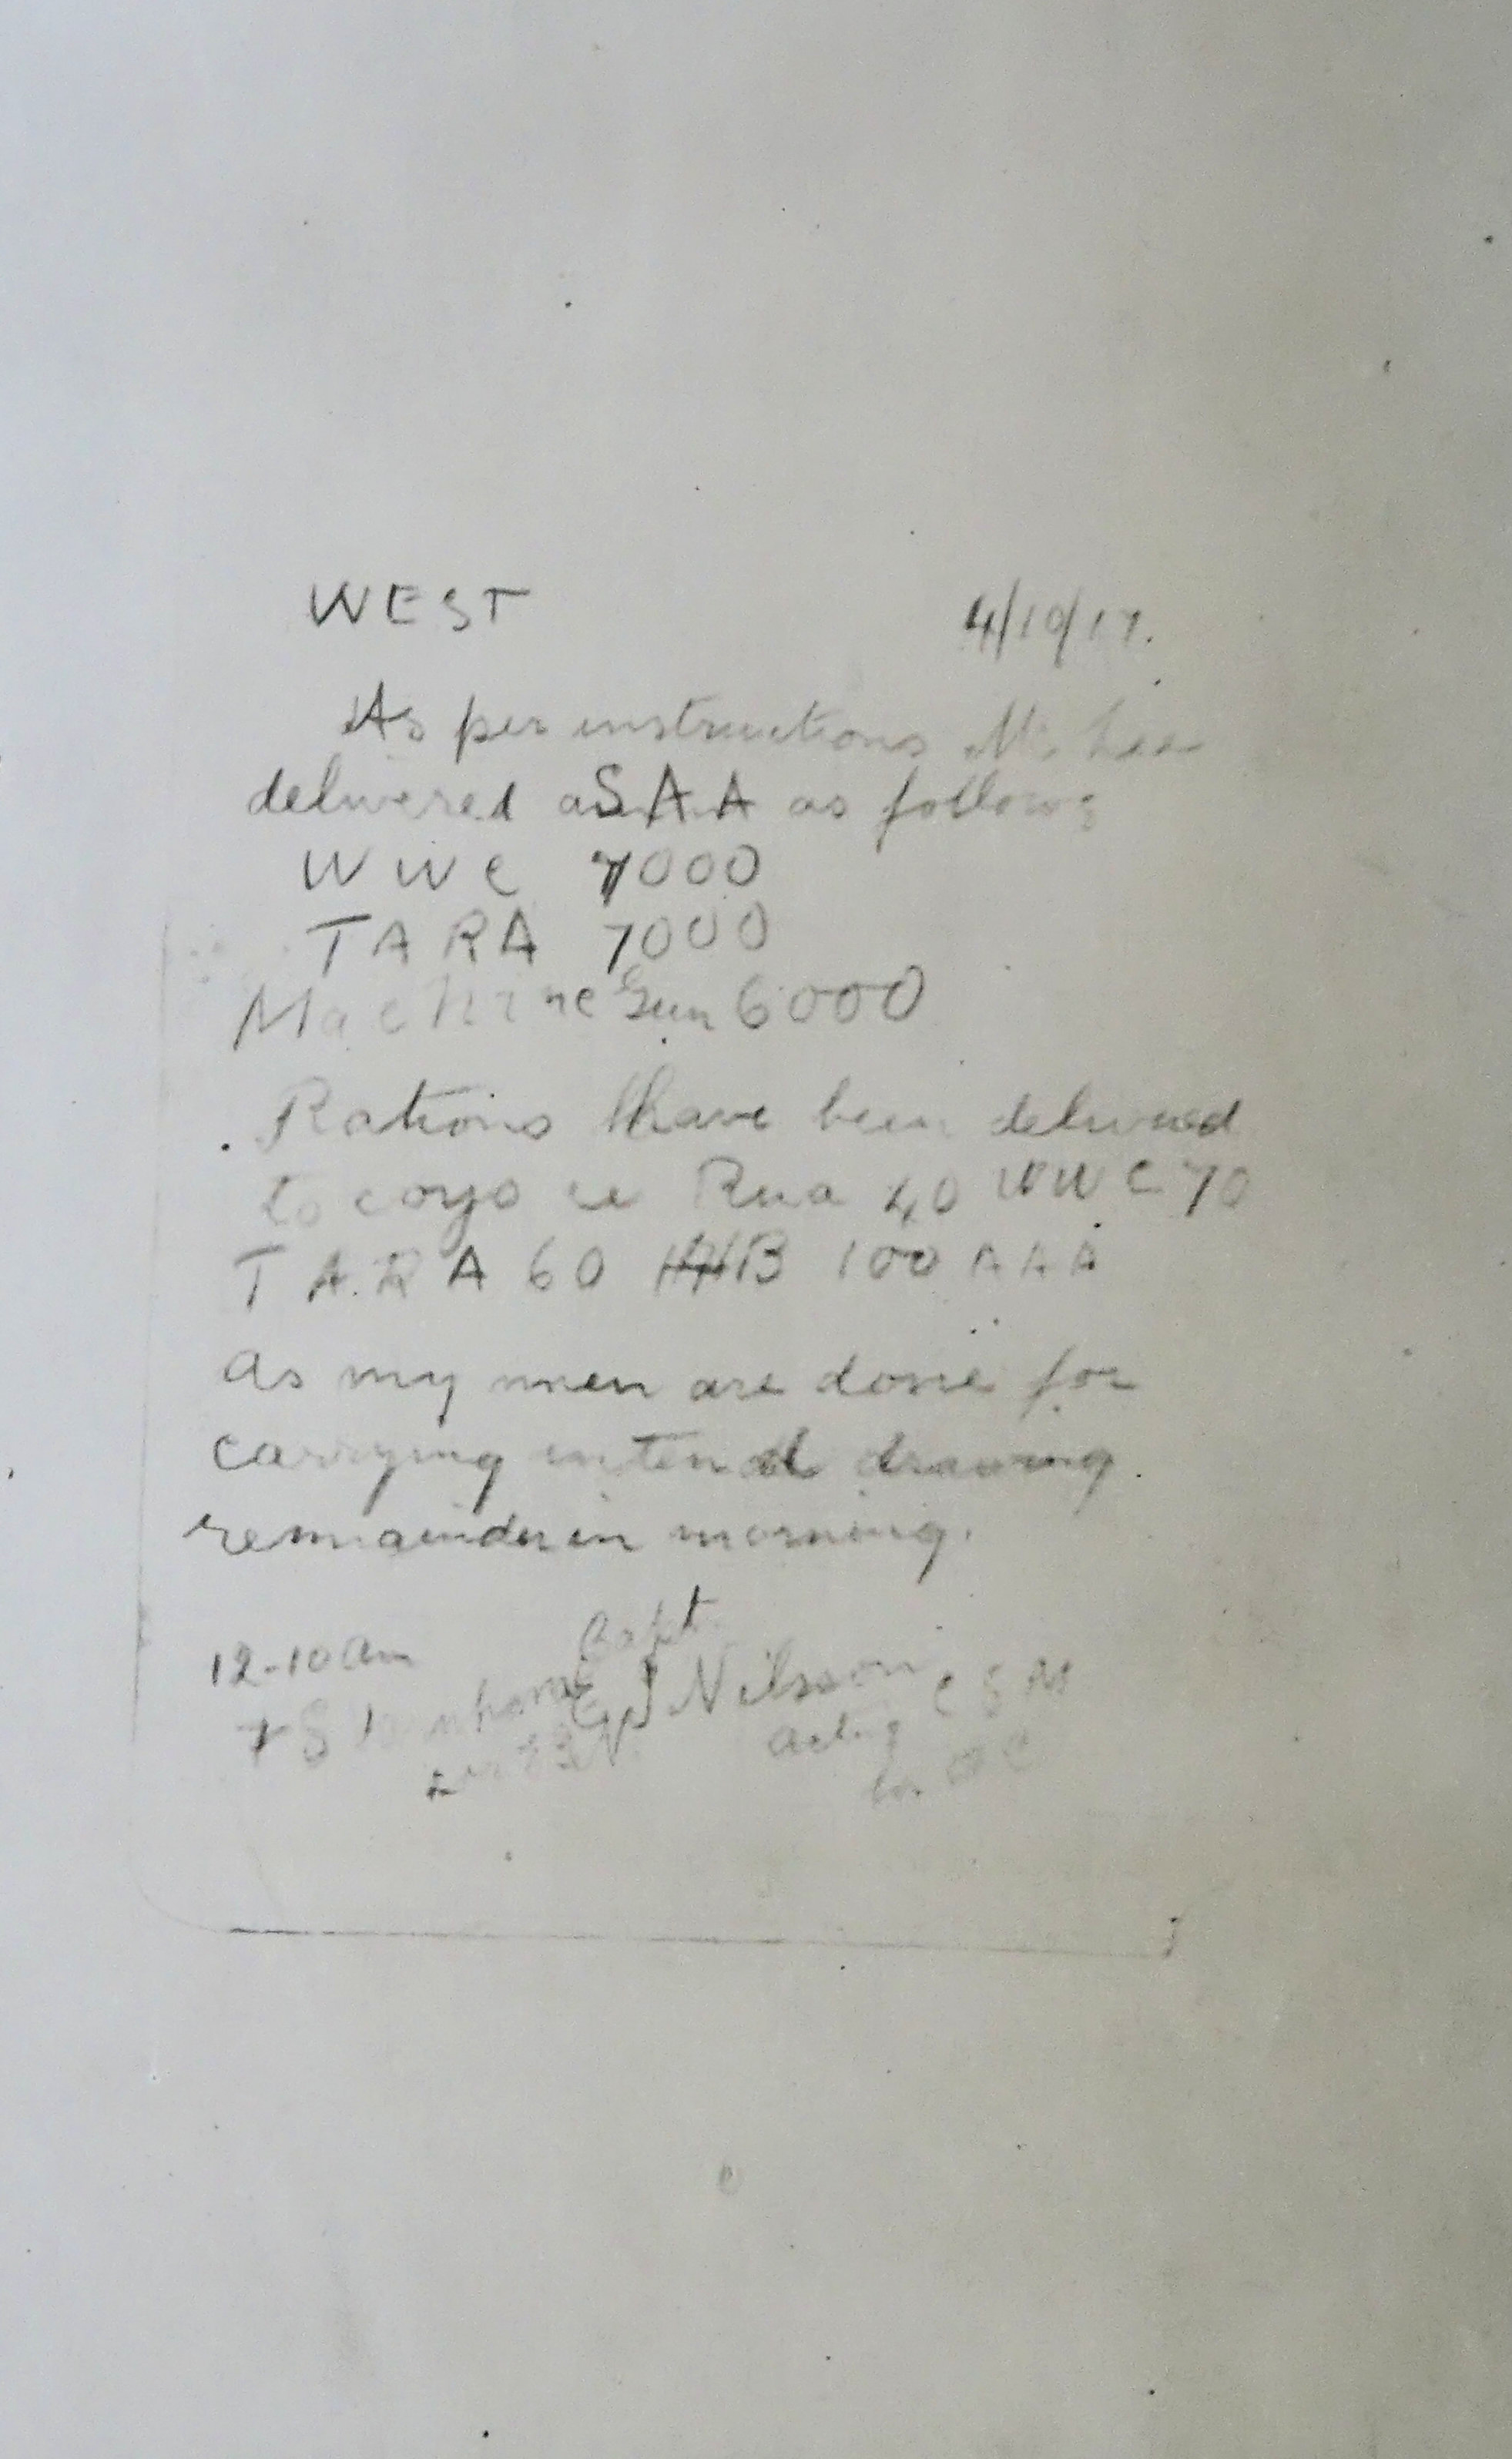 WEST 4/10/17.
As per instructions Mr. Lee
delivered SAA as follows
WWC 7000
TARA 7000
Machine Gun 6000
Rations have been delivered
to coys ie Rua 40 WWC 70
TARA 60 B 100 AAA
As my men are done for
carrying intend drawing
remainder in morning.
12-10 am Capt.
Nilsson CSM
Acting